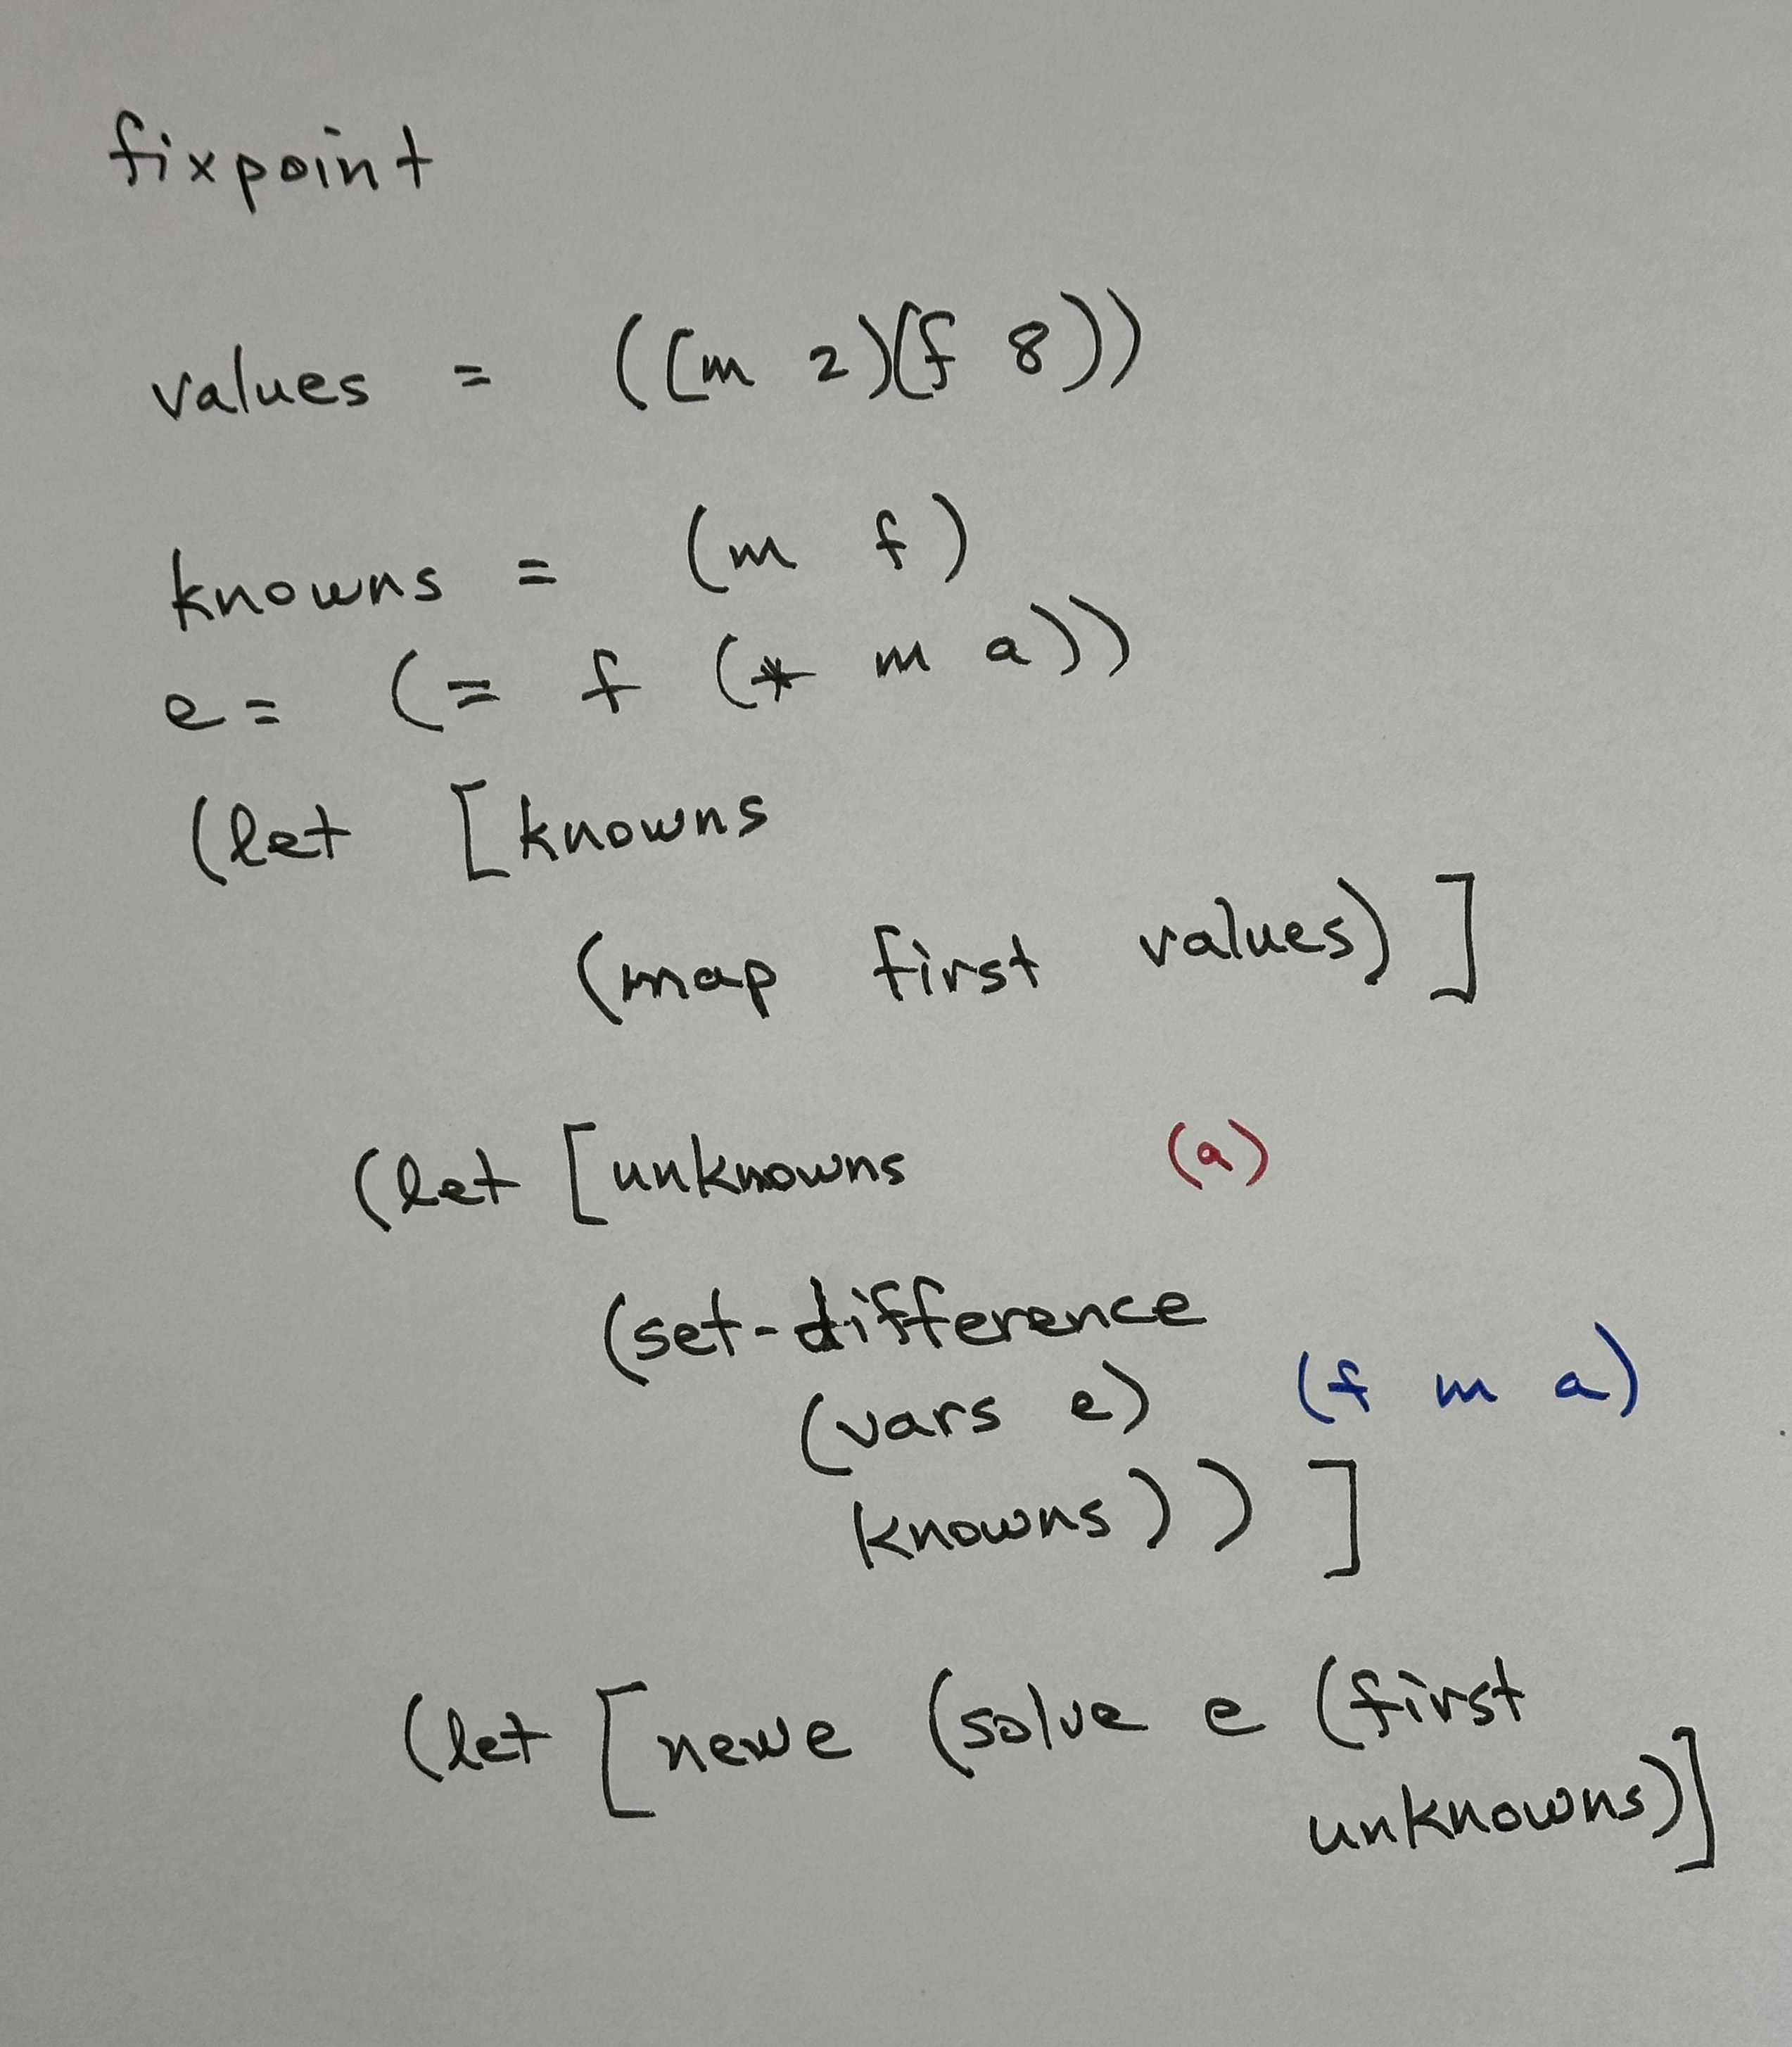 fixpoint
values = ((m 2)(f 8))
knowns = (m f)
e = (= f (* m a))
(let [knowns
(map first values) ]
(let [unknowns (a)
(set-difference
(vars e) (f m a)
knowns)) ]
(let [newe (solve e (first
unknowns)]